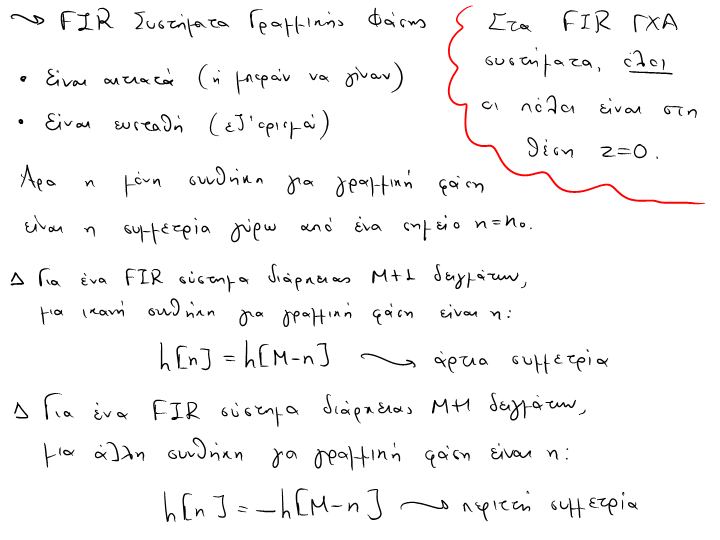 ~> FIR Συστήματα Γραμμικής Φάσης
• Είναι αιτιατά (ή μπορούν να γίνουν)
• Είναι ευσταθή (εξ' ορισμού)
Άρα η μόνη συνθήκη για γραμμική φάση
είναι η συμμετρία γύρω από ένα σημείο n=n₀.
Στα FIR ΓΧΑ
συστήματα, όλοι
οι πόλοι είναι στη
θέση z=0.
Δ Για ένα FIR σύστημα διάρκειας M+1 δειγμάτων,
μια ικανή συνθήκη για γραμμική φάση είναι η:
h[n] = h[M-n] ~> άρτια συμμετρία
Δ Για ένα FIR σύστημα διάρκειας M+1 δειγμάτων,
μια άλλη συνθήκη για γραμμική φάση είναι η:
h[n] = -h[M-n] ~> περιττή συμμετρία